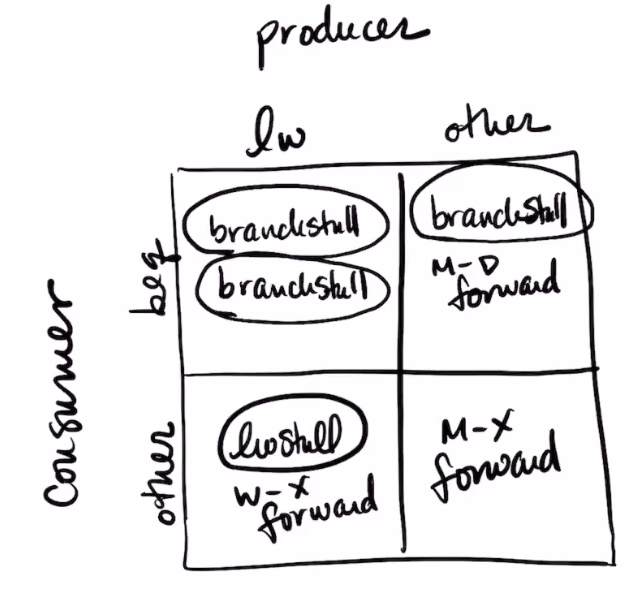 producer
lw
other
Consumer
beq
other
branchstall
branchstall
branchstall
M-D
forward
lwstall
W-X
forward
M-X
forward